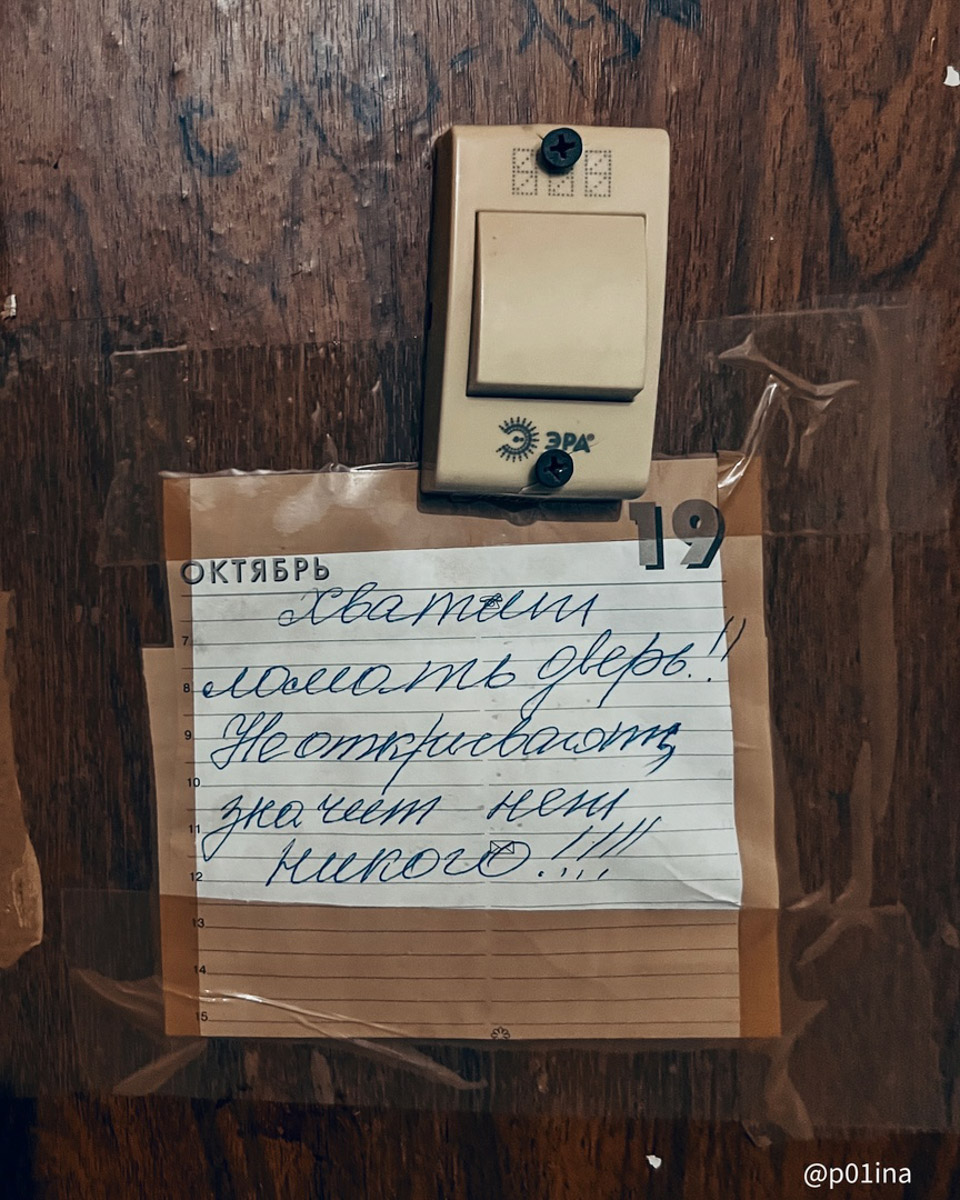 ЭРА®
19
ОКТЯБРЬ
Хватит
7
ломать дверь!!
8
Не открывают,
9
10
значит нет
11
никого!!!!
12
13
14
15
@p01ina